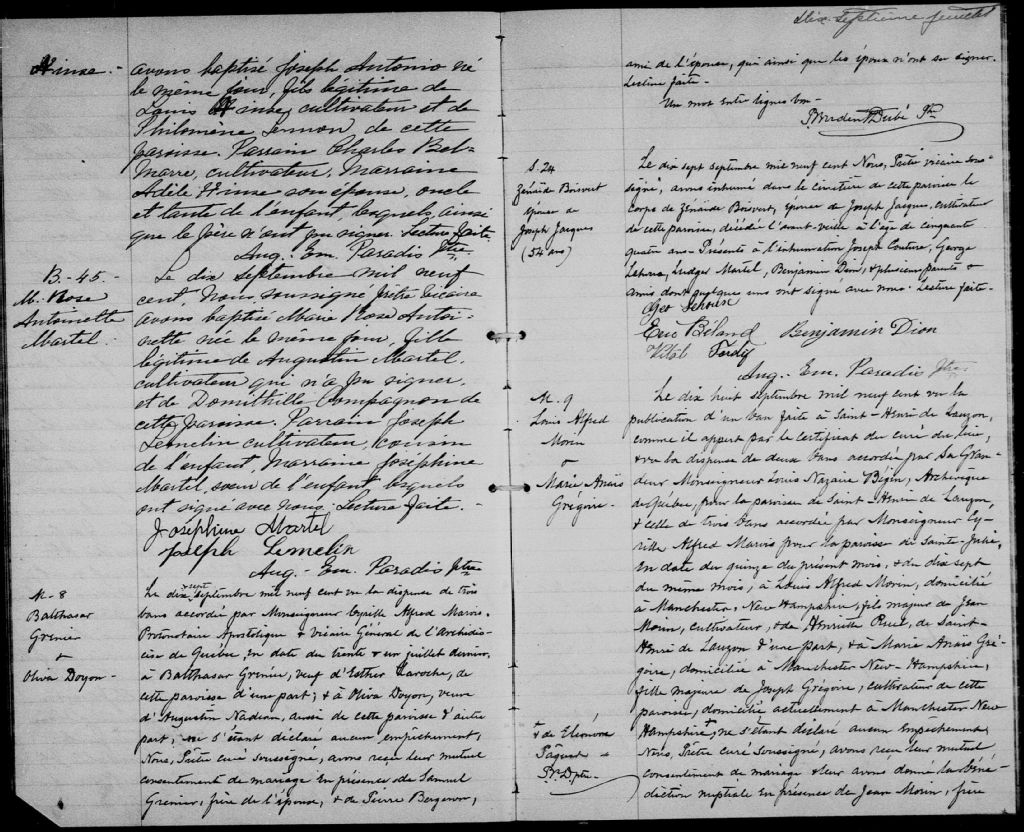 Dix septième feuillet
Hinse.-
avons baptisé Joseph Antonio né
le même jour, fils légitime de
Louis Hinse, cultivateur et de
Philomène Lemon de cette
paroisse. Parrain Charles Bel-
Marre, cultivateur, Marraine
Adèle Hinse son épouse, oncle
et tante de l'enfant, lesquels, ainsi
que le père n'ont pu signer. Lecture faite.
Aug. Em. Paradis Ptre
B-45-
M. Rose
Antoinette
Martel.
Le dix septembre mil neuf
cent, Nous, soussigné prêtre vicaire
avons baptisé Marie Rose Antoi-
nette née le même jour, fille
légitime de Augustin Martel,
cultivateur qui n'a pu signer,
et de Domithille Compagnon de
cette paroisse. Parrain Joseph
Lemelin cultivateur, cousin
de l'enfant, Marraine Joséphine
Martel, soeur de l'enfant lesquels
ont signé avec nous. Lecture faite.-
Joséphine Martel
Joseph Lemelin
Aug. Em. Paradis Ptre
M-8
Balthasar
Grenier
+
Oliva Doyon-
Le dix sept septembre mil neuf cent vu la dispense de trois
bans accordée par Monseigneur Cyrille Alfred Marois,
Protonotaire Apostolique & Vicaire Général de l'Archidio-
cèse de Québec, en date du trente & un juillet dernier,
à Balthasar Grenier, veuf d'Esther Laroche, de
cette paroisse d'une part; & à Oliva Doyon, veuve
d'Augustin Nadeau, aussi de cette paroisse d'autre
part, ne s'étant déclaré aucun empêchement,
Nous, Prêtre curé soussigné, avons reçu leur mutuel
consentement de mariage en présence de Samuel
Grenier, frère de l'époux, & de Pierre Bergeron,
ami de l'épouse, qui ainsi que les époux n'ont su signer.
Lecture faite-
Un mot entre lignes bon-
P. Prudent Dubé Ptre
S. 24
Zénaïde Boisvert
épouse de
Joseph Jacques
(54 ans)
Le dix sept septembre mil neuf cent Nous, Prêtre vicaire sous-
signé, avons inhumé dans le cimetière de cette paroisse le
corps de Zénaïde Boisvert, épouse de Joseph Jacques, cultivateur
de cette paroisse, décédée l'avant-veille à l'âge de cinquante
quatre ans- Présents à l'inhumation Joseph Couture, George
Ludger Martel, Benjamin Dion, & plusieurs parents &
amis dont quelques uns ont signé avec nous. Lecture faite-
Geo
Eric Béland Benjamin Dion
Vital
Aug. Em. Paradis Ptre
M. 9
Louis Alfred
Morin
+
Marie Anaïs
Grégoire-
Le dix huit septembre mil neuf cent vu la
publication d'un ban faite à Saint-Henri de Lauzon,
comme il appert par le certificat du curé du lieu,
& vu la dispense de deux bans accordée par Sa Gran-
deur Monseigneur Louis Nazaire Bégin, Archevêque
de Québec, pour la paroisse de Saint-Henri de Lauzon,
& celle de trois bans accordée par Monseigneur Cy-
rille Alfred Marois pour la paroisse de Sainte-Julie,
en date du quinze du présent mois, & du dix sept
du même mois, à Louis Alfred Morin, domicilié
à Manchester, New Hampshire, fils majeur de Jean
Morin, cultivateur, & de Henriette de Saint-
Henri de Lauzon d'une part, & à Marie Anaïs Gré-
goire, domiciliée à Manchester New-Hampshire,
fille majeure de Joseph Grégoire, cultivateur de cette
paroisse, domicilié actuellement à Manchester New
Hampshire, + ne s'étant déclaré aucun empêchement,
Nous, Prêtre curé soussigné, avons reçu leur mutuel
consentement de mariage & leur avons donné la béné-
diction nuptiale en présence de Jean Morin, frère
+ de Eléonore
Pâquet-
Pr. D. ptre